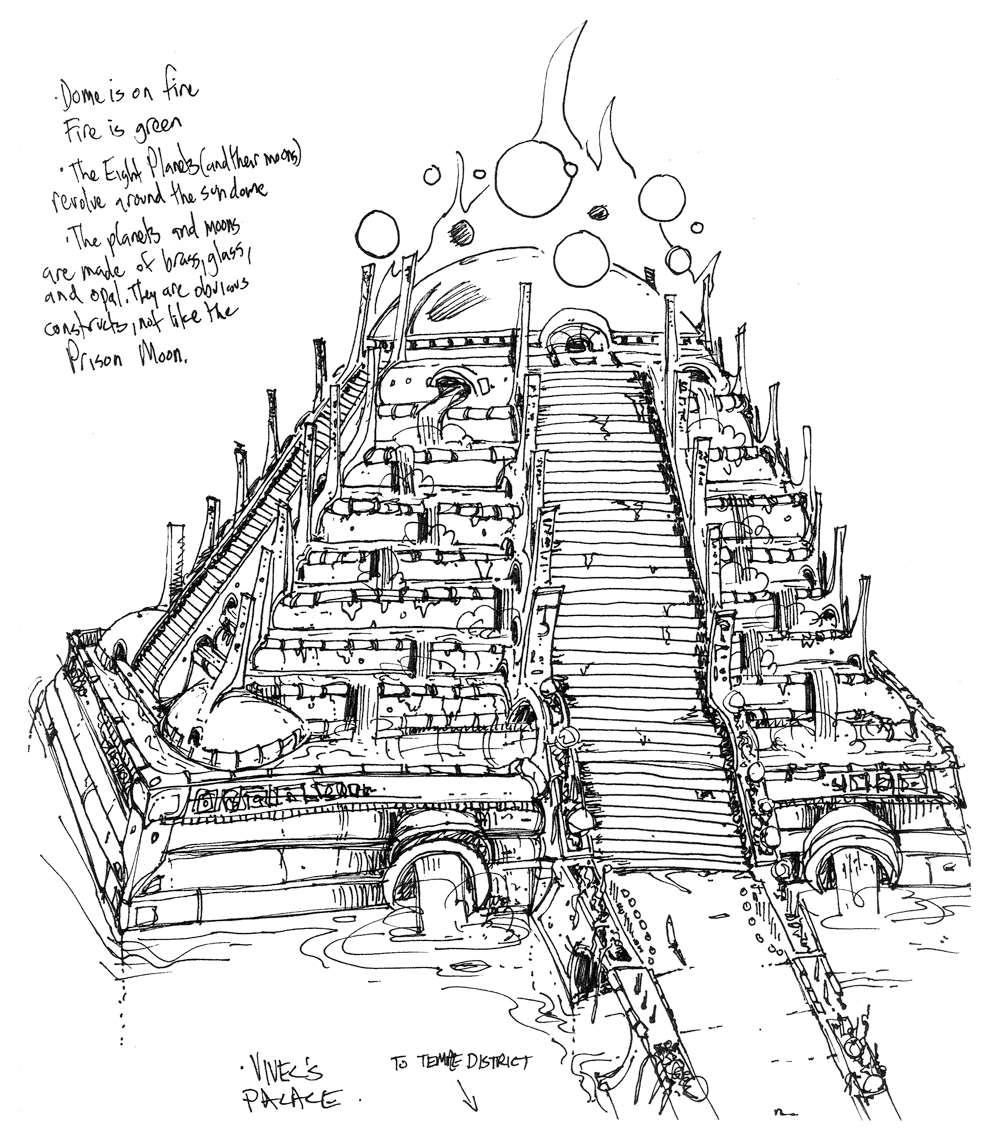 · Dome is on fire
Fire is green
· The Eight Planets (and their moons)
revolve around the sun dome
· The planets and moons
are made of brass, glass,
and opal. They are obvious
constructs, not like the
Prison Moon.
· VIVEC'S
PALACE.
TO TEMPLE DISTRICT